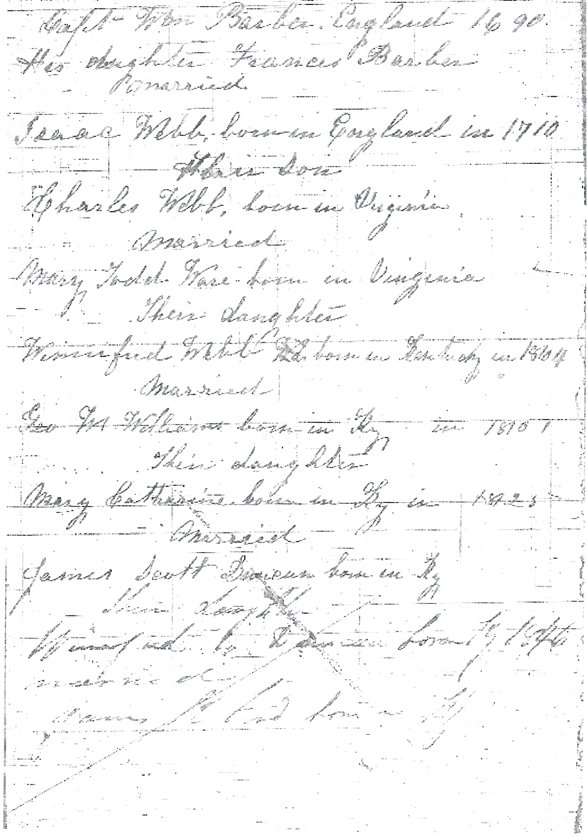 Capt Wm Barber. England 1690.
His daughter Frances Barber
married
Isaac Webb, born in England in 1710
Their son
Charles Webb, born in Virginia
Married
Mary Todd Ware born in Virginia
Their daughter
Winnifred Webb born in Kentucky in 1804
Married
Geo W Williams born in Ky in 1801
Their daughter
Mary Catharine born in Ky in 1825
Married
James Scott Duncan born in Ky
Their daughter
Duncan born Ky
married
born Ky